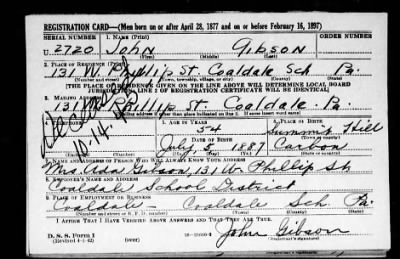 REGISTRATION CARD—(Men born on or after April 28, 1877 and on or before February 16, 1897)
SERIAL NUMBER 1. NAME (Print) ORDER NUMBER
U 2720 John Gibson
(First) (Middle) (Last)
2. PLACE OF RESIDENCE (Print)
131 W. Phillip St. Coaldale Sch Pa.
(Number and street) (Town, township, village, or city) (County) (State)
[THE PLACE OF RESIDENCE GIVEN ON THE LINE ABOVE WILL DETERMINE LOCAL BOARD
JURISDICTION; LINE 2 OF REGISTRATION CERTIFICATE WILL BE IDENTICAL]
3. MAILING ADDRESS
131 W. Phillip St. Coaldale. Pa.
Deceased
10-14-42
5. AGE IN YEARS 6. PLACE OF BIRTH
54 Summit Hill
DATE OF BIRTH
July 5 1887 Carbon
7. NAME AND ADDRESS OF PERSON WHO WILL ALWAYS KNOW YOUR ADDRESS
Mrs. Ada Gibson, 131 W. Phillip St
8. EMPLOYER'S NAME AND ADDRESS
Coaldale School District
9. PLACE OF EMPLOYMENT OR BUSINESS
Coaldale - Coaldale Sch Pa.
(Number and street or R. F. D. number) (Town) (County) (State)
I AFFIRM THAT I HAVE VERIFIED ABOVE ANSWERS AND THAT THEY ARE TRUE.
D. S. S. Form 1
(Revised 4-1-42) (over)
John Gibson